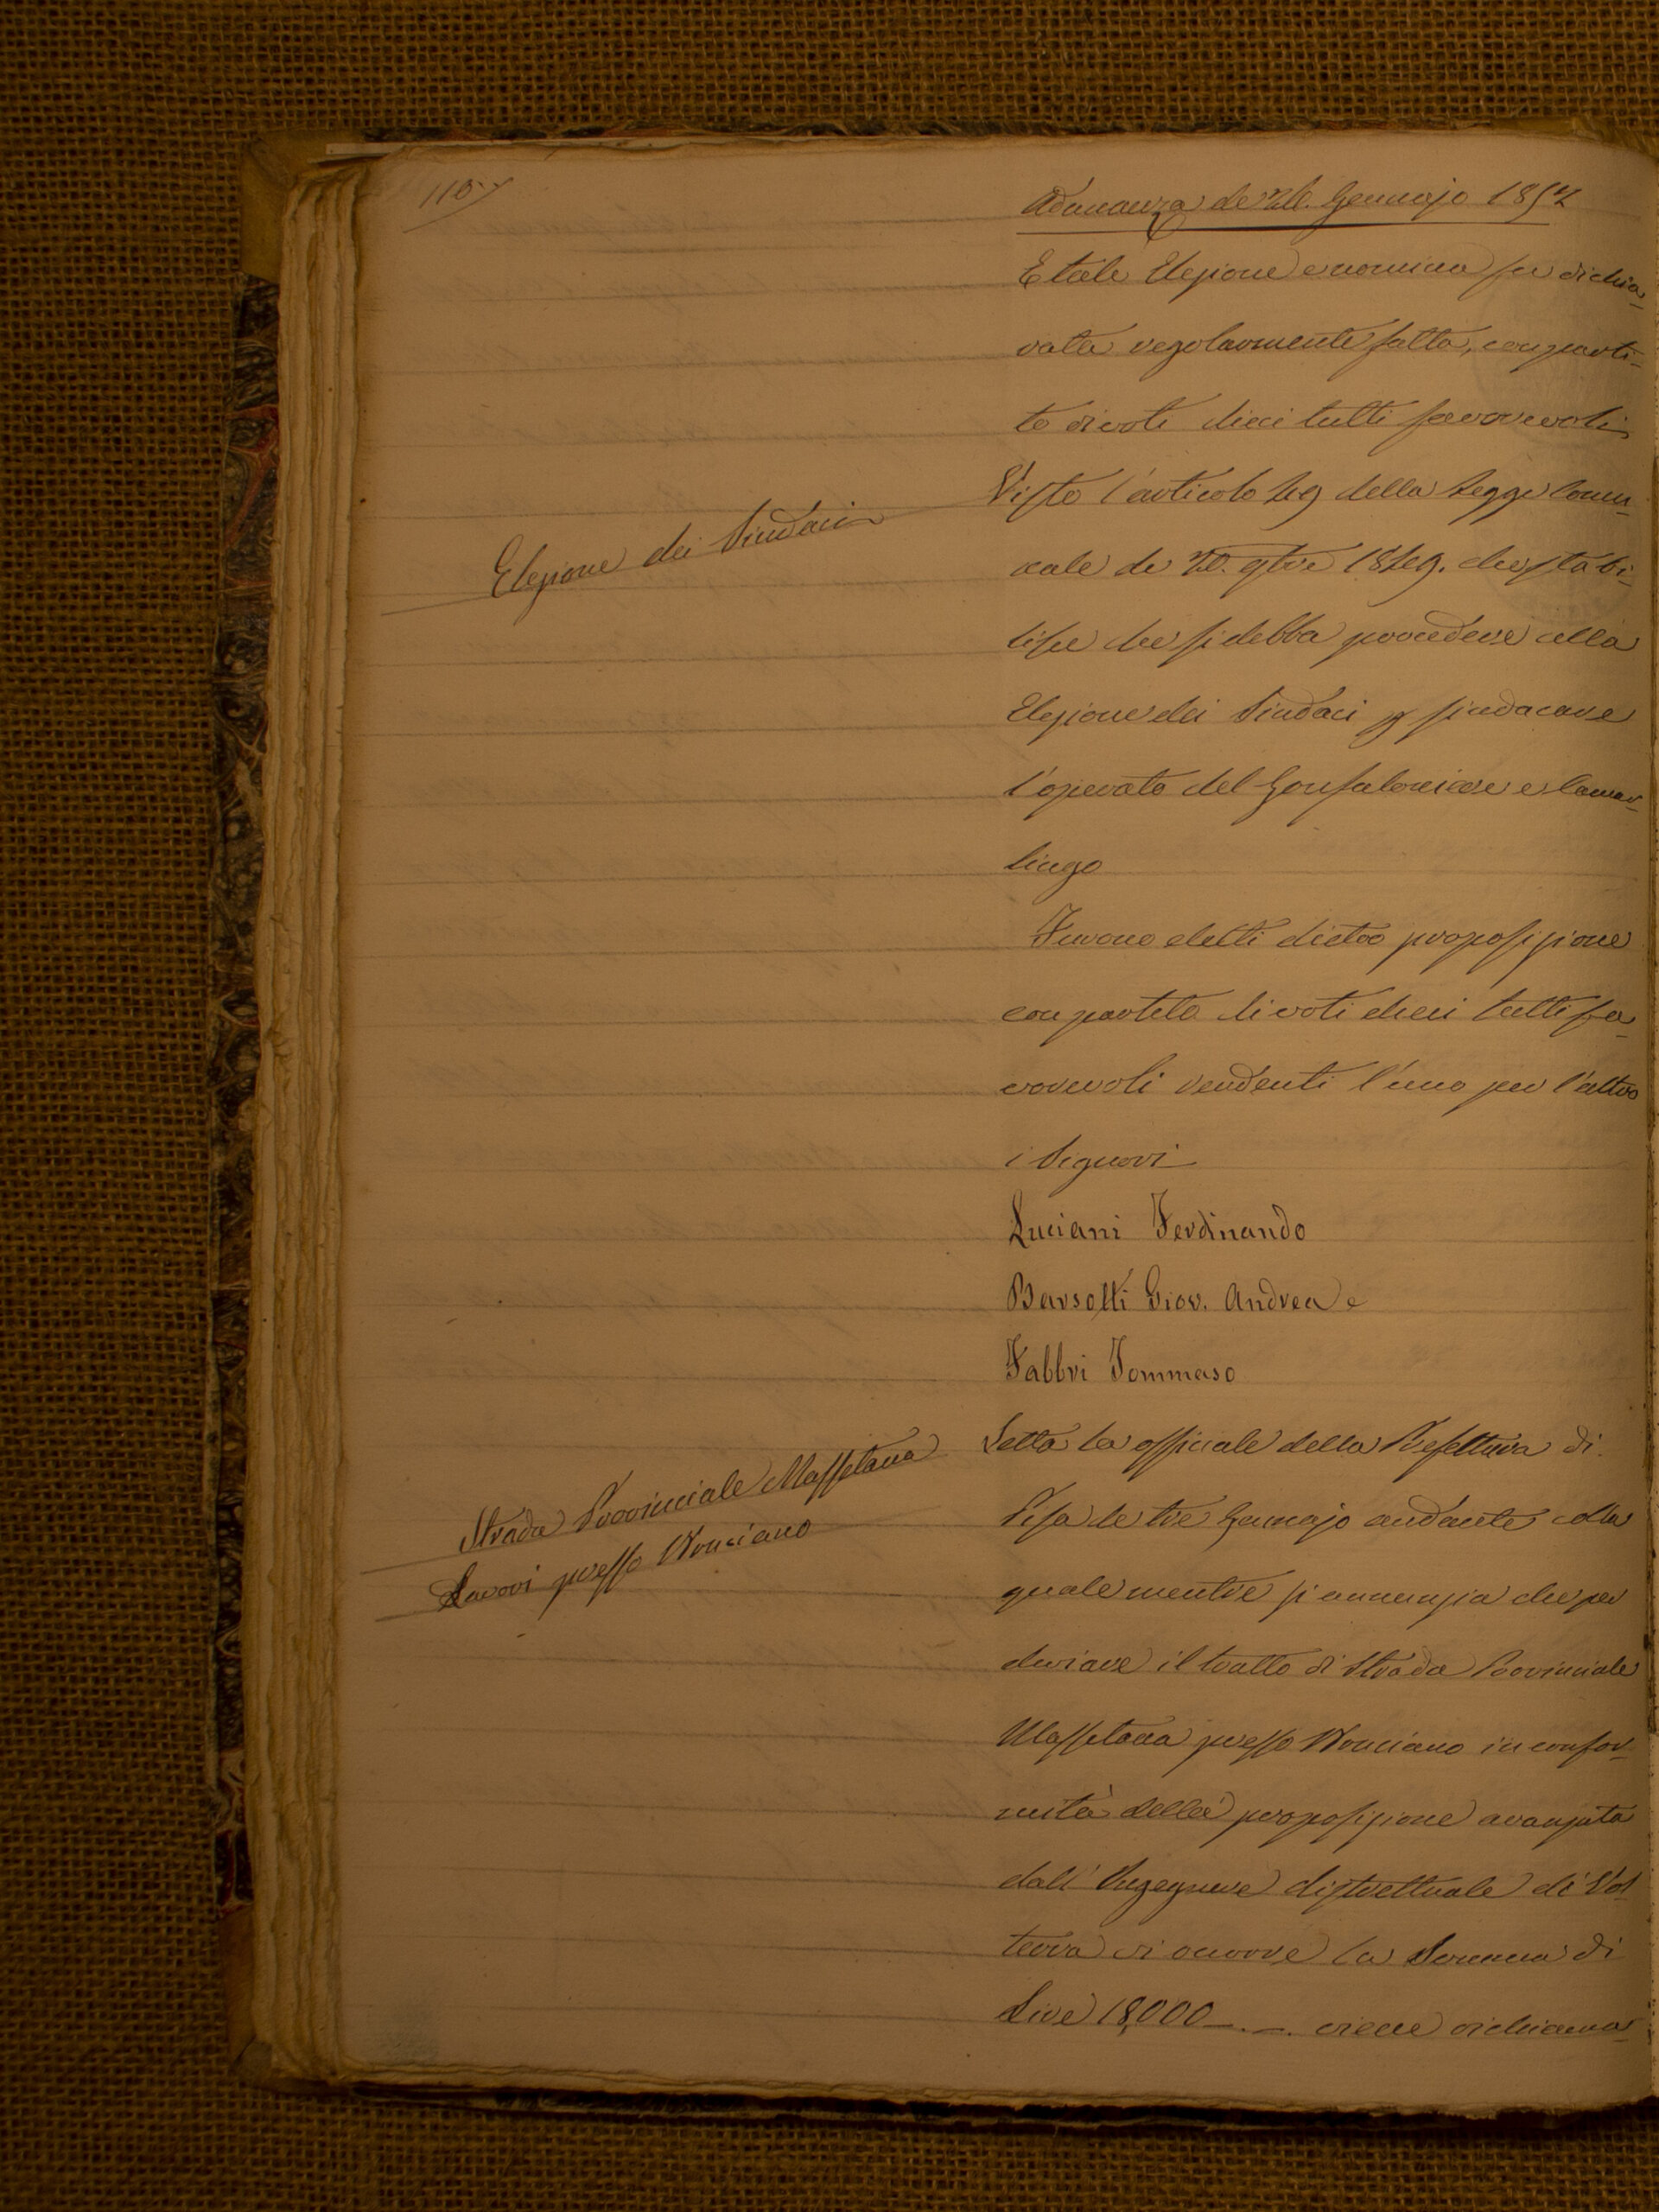 Adunanza de Gennajo 185
E tale Elezione e nomina fu dichia-
rata regolarmente fatta, con parti-
to di voti dieci tutti favorevoli
Elezione dei Sindaci
Visto l'articolo della Legge Comu-
nale de 20. 9bre 1849. che stabi-
lisce che si debba procedere alla
Elezione dei Sindaci p sindacare
l'operato del Gonfaloniere e Camar-
lingo
Furono eletti dietro proposizione
con partito di voti dieci tutti fa-
vorevoli rendenti l'uno per l'altro
i Signori
Luciani Ferdinando
Barsotti Giov. Andrea e
Fabbri Tommaso
Strada Provinciale Massetana
Lavori presso
Letta la officiale della Prefettura di
Pisa de tre Gennajo andante colla
quale mentre si annunzia che per
deviare il tratto di Strada Provinciale
Massetana presso in confor-
mità della proposizione avanzata
dall'Ingegnere distrettuale di Vol
terra vi occorre la Somma di
Lire 18,000 _._. viene richiama-